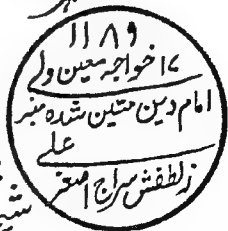 ۱۱۸۹
۱۷ خواجہ معین ولی
امام دین متین شدہ منبر
علی
زلطفش سراج اصغر